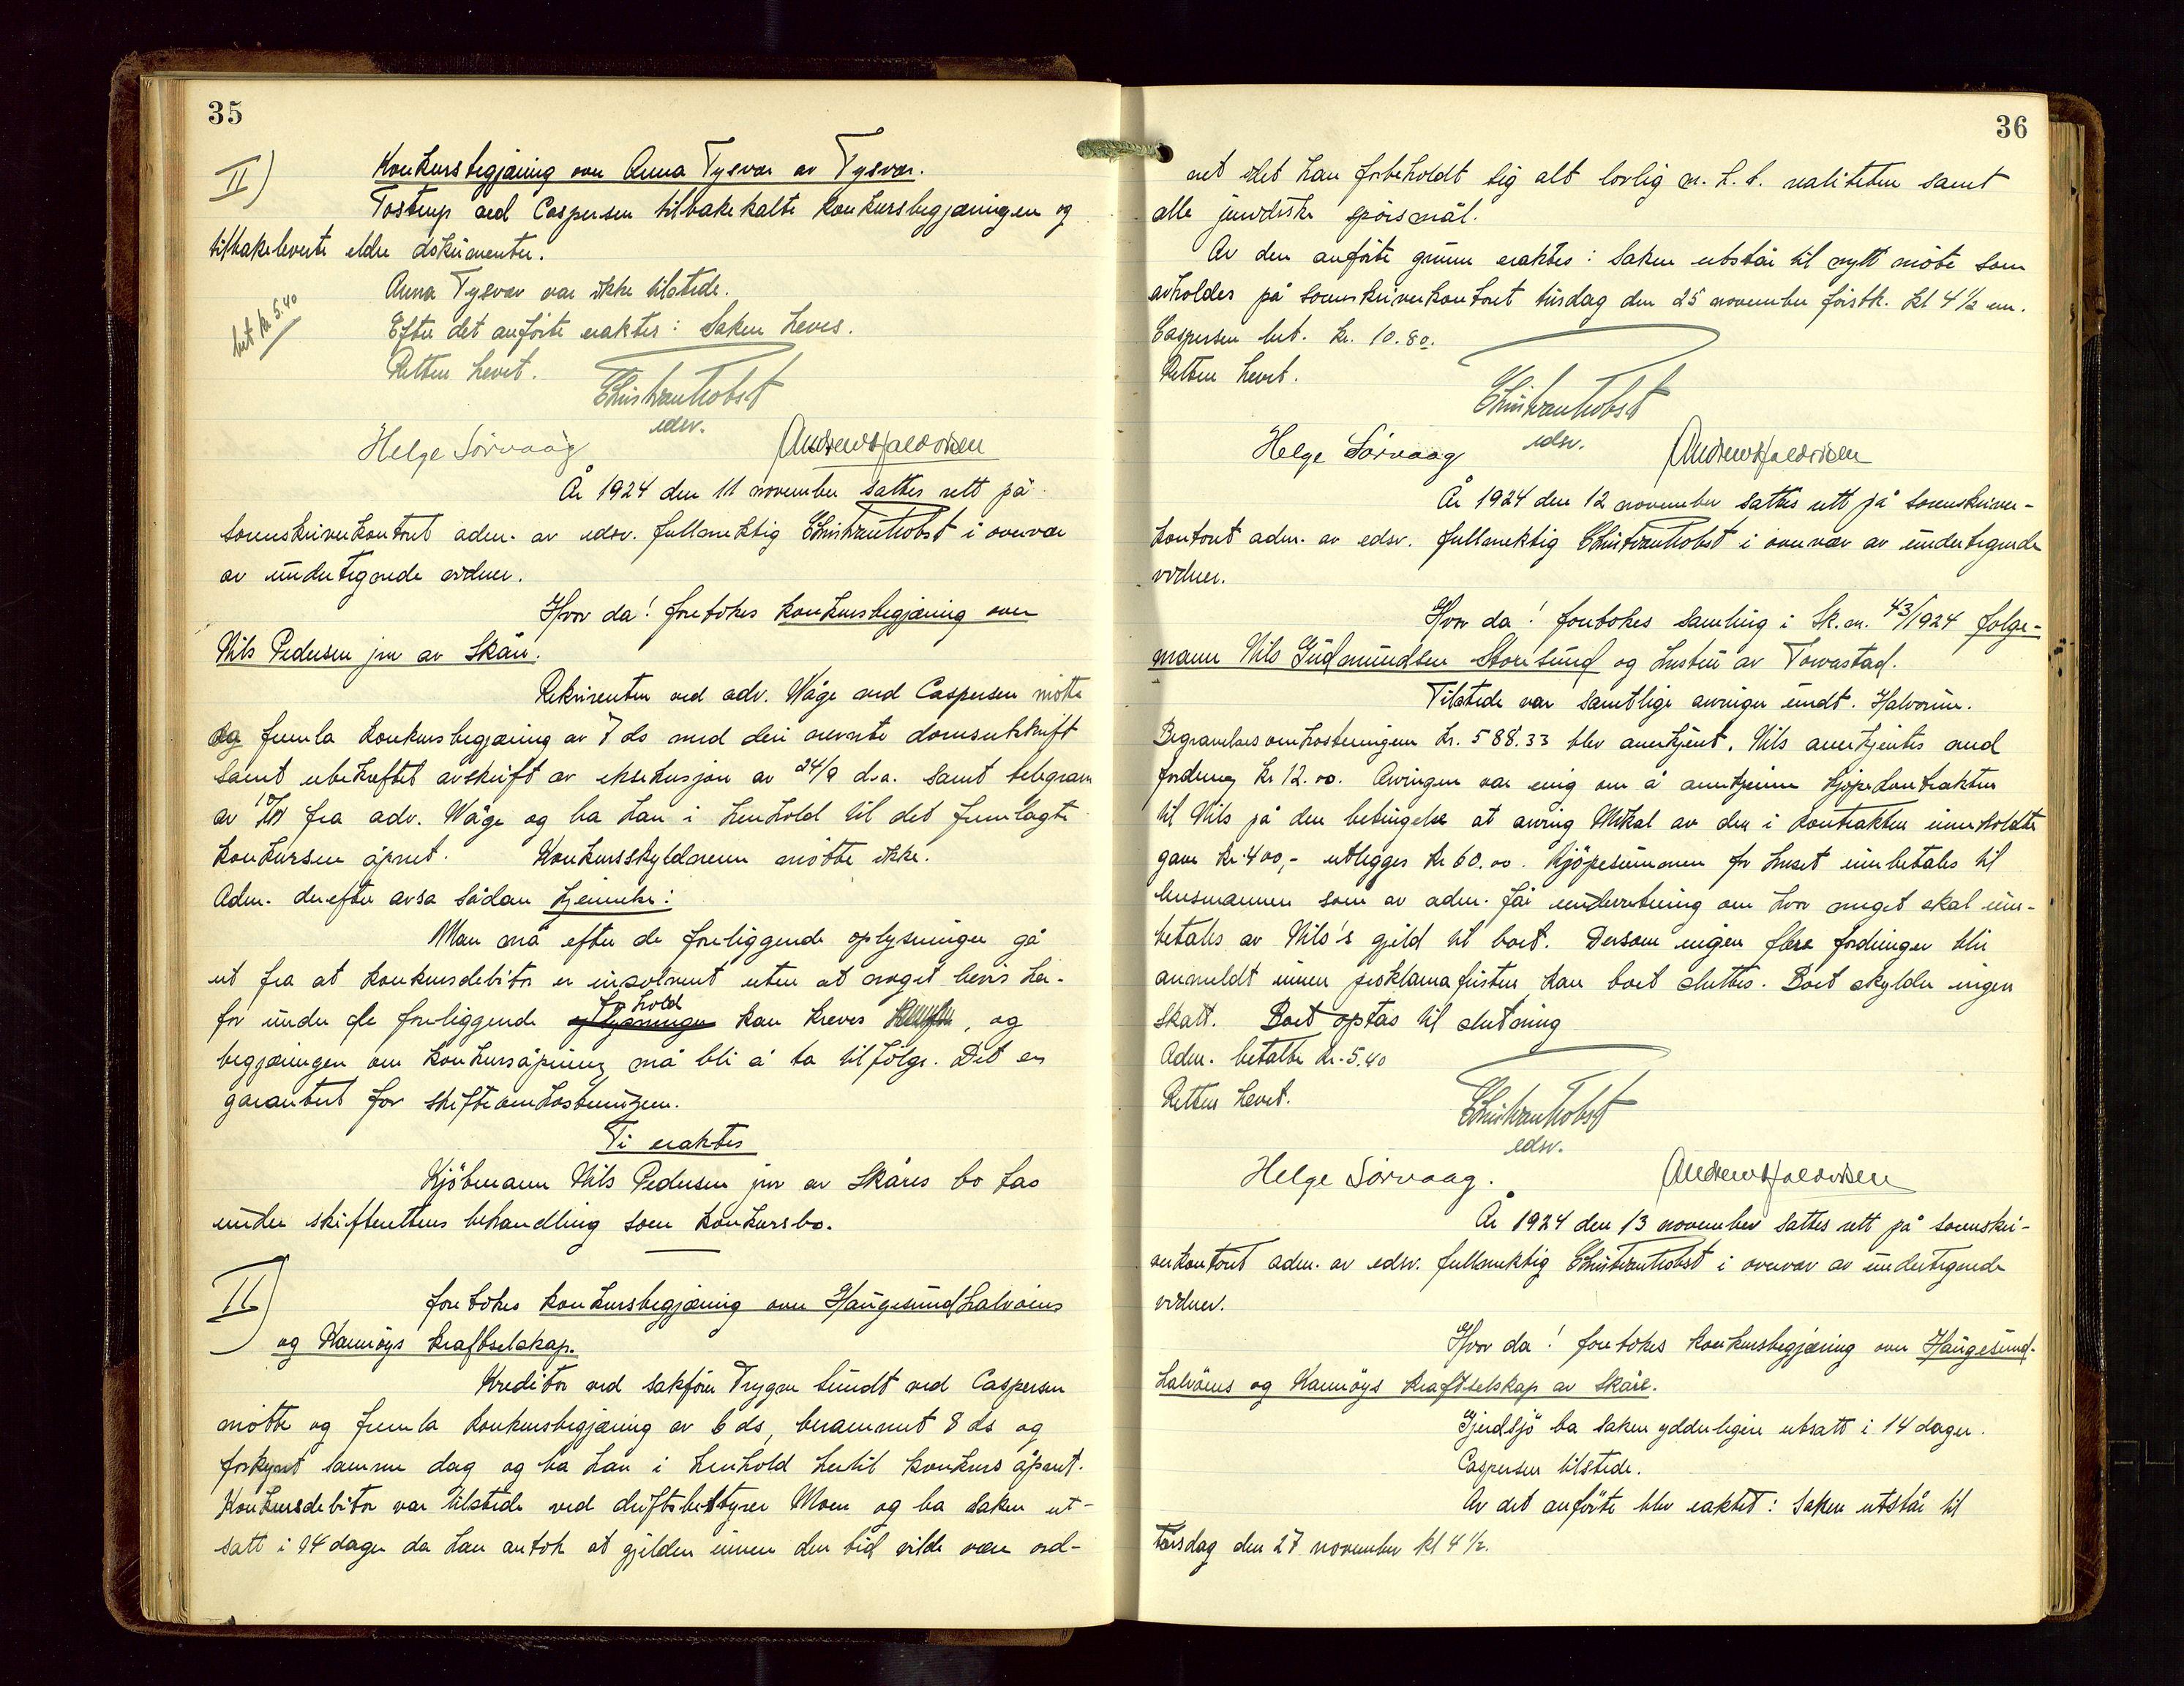 35
II)
Konkursbegjæring over Anna Tysvær av Tysvær.
Tostrup ved Caspersen tilbakekalte konkursbegjæringen og
tilbakeleverte eldre dokumenter.
Anna Tysvær var ikke tilstede.
bet kr 5.40
Efter det anførte eraktes: Saken heves.
Retten hevet.
Christian Trobst
edsv.
Helge Sørvaag
Andreas Halvorsen
År 1924 den 11 november sattes rett på
sorenskriverkontoret adm. av edsv. fullmektig Christian Trobst i overvær
av undertegnede vidner.
Hvor da! foretokes konkursbegjæring over
Nils Pedersen jnr av Skåre.
Rekvirenten ved adv. Wåge ved Caspersen møtte
og fremla konkursbegjæring av 7 ds med deri nevnte domsutskrift
samt ubekreftet avskrift av eksekusjon av 24/9 d.a. samt telegram
av fra adv. Wåge og ba han i henhold til det fremlagte
konkursen åpnet. Konkursskyldneren møtte ikke.
Adm. derefter avsa sådan kjennelse:
Man må efter de foreliggende oplysninger gå
ut fra at konkursdebitor er insolvent uten at noget bevis her-
for under de foreliggende forhold kan kreves, og
begjæringen om konkursåpning må bli å ta tilfølge. Det er
garantert for skifteomkostningene.
Ti eraktes
Kjøbmann Nils Pedersen jnr av Skåres bo tas
under skifterettens behandling som konkursbo.
II)
foretokes konkursbegjæring over Haugesundhalvøens
og Karmøys kraftselskap.
Kreditor ved sakfører Trygve Sundt ved Caspersen
møtte og fremla konkursbegjæring av 6 ds, berammet 8 ds og
forkynt samme dag og ba han i henhold hertil konkurs åpnet.
Konkursdebitor var tilstede ved driftsbestyrer Moen og ba saken ut-
satt i 14 dager da han antok at gjelden innen den tid vilde være ord-
36
net idet han forbeholdt sig alt lovlig m. h. t. realiteten samt
alle juridiske spørsmål.
Av den anførte grunn eraktes: Saken utstår til nytt møte som
avholdes på sorenskriverkontoret tirsdag den 25 november førstk. kl 4 1/2 em.
Caspersen bet. kr. 10.80.
Retten hevet.
Christian Trobst
edsv.
Helge Sørvaag
Andreas Halvorsen
År 1924 den 12 november sattes rett på sorenskriver-
kontoret adm. av edsv. fullmektig Christian Trobst i overvær av undertegnede
vidner.
Hvor da! foretokes samling i Sk. nr. 43/1924 følge-
mann Nils Gudmundsen Storesund og hustru av Torvastad.
Tilstede var samtlige arvinger undt. Halvorine.
Begravelsesomkostningene kr. 588.33 blev anerkjent. Nils anerkjentes med
fordring kr 12.00. Arvingene var enig om å anerkjenne kjøpekontrakten
til Nils på den betingelse at arving Mikal av den i kontrakten inneholdte
gave kr 400,- utlegges kr 60.00. Kjøpesummen for huset innbetales til
lensmannen som av adm. får underretning om hvor meget skal inn-
betales av Nils's gjeld til boet. Dersom ingen flere fordringer blir
anmeldt innen proklamafristen kan boet sluttes. Boet skylder ingen
skatt. Boet optas til slutning
Adm. betalte kr. 5.40
Retten hevet.
Christian Trobst
edsv.
Helge Sørvaag.
Andreas Halvorsen
År 1924 den 13 november sattes rett på sorenskri-
verkontoret adm. av edsv. fullmektig Christian Trobst i overvær av undertegnede
vidner.
Hvor da! foretokes konkursbegjæring over Haugesund-
halvøens og Karmøys kraftselskap av Skåre.
Gjerdsjø ba saken ydderligere utsatt i 14 dager.
Caspersen tilstede.
Av det anførte blev eraktet: Saken utstår til
torsdag den 27 november kl 4 1/2.